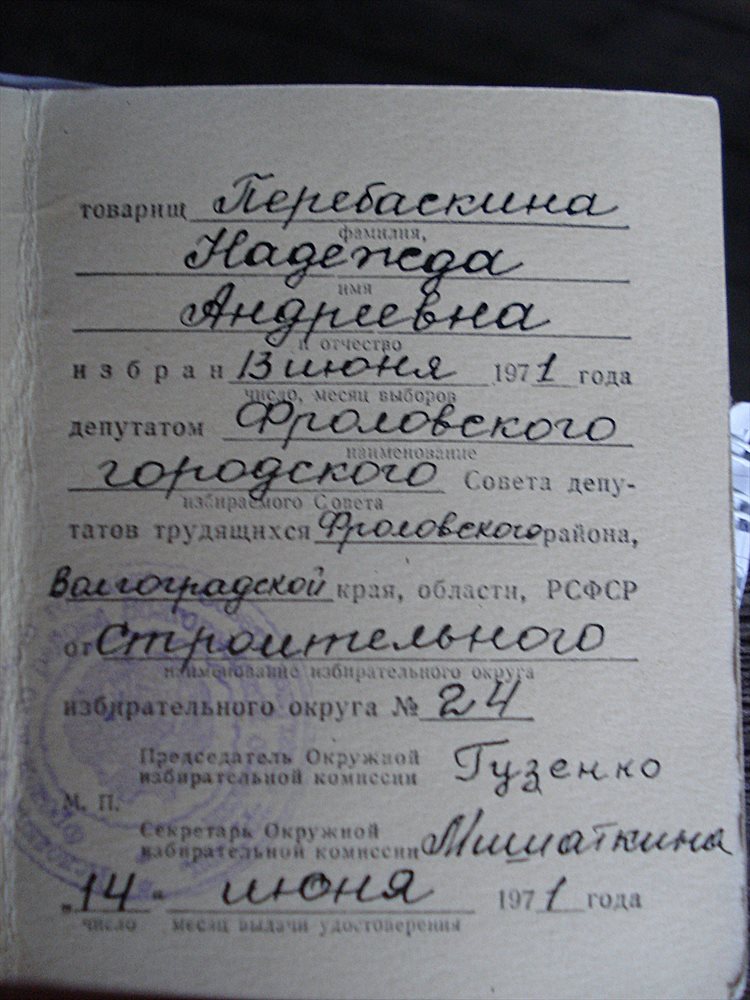 товарищ Перебаскина
фамилия,
Надежда
имя
Андреевна
и отчество
избран 13 июня 1971 года
число, месяц выборов
депутатом Фроловского
наименование
городского Совета депу-
избираемого Совета
татов трудящихся Фроловского района,
Волгоградской края, области, РСФСР
от Строительного
наименование избирательного округа
избирательного округа № 24
Председатель Окружной
избирательной комиссии Гузенко
М. П.
Секретарь Окружной
избирательной комиссии Мишаткина
„14“ июня 1971 года
число месяц выдачи удостоверения